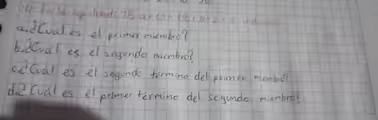 a.¿Cuál es el primer miembro?
b.¿Cual es el segundo miembro?
c.¿Cuál es el segundo término del primer miembro?
d.¿Cuál es el primer término del segundo miembro?